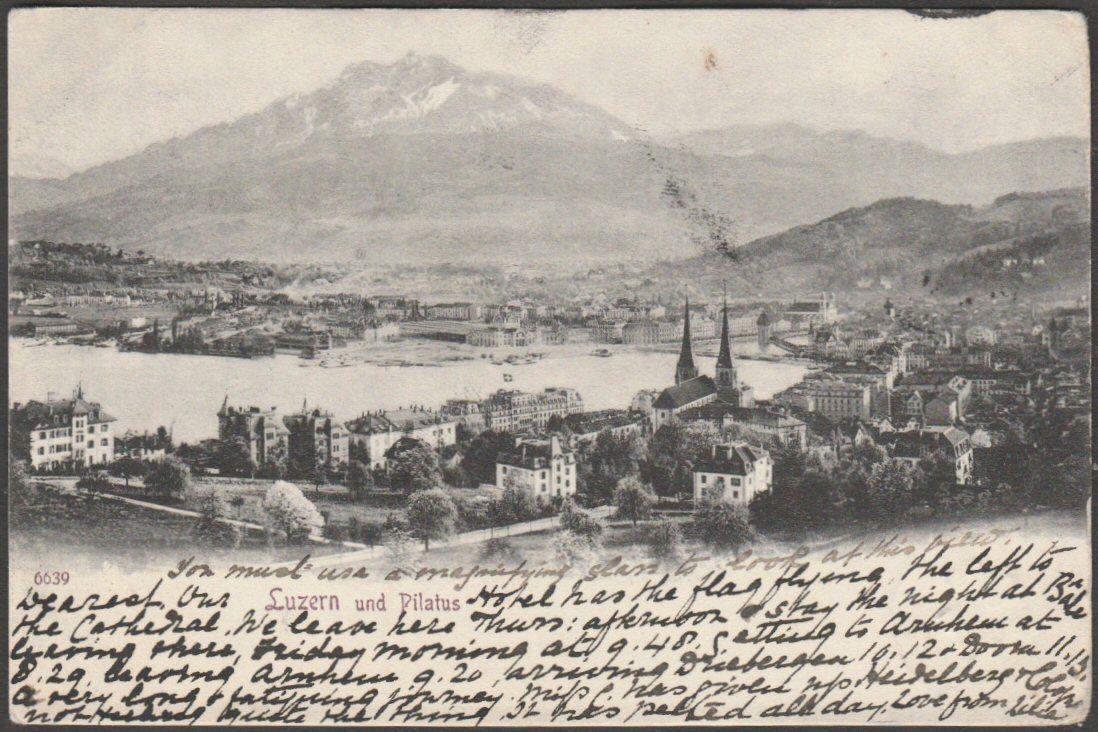 You must use a magnifying glass to look at this view.
6639
Luzern und Pilatus
Dearest. Our Hotel has the flag flying, the left to
the Cathedral. We leave here Thurs: afternoon & stay the night at Bâle
leaving there, Friday morning at 9.48. getting to Arnhem at
8.29, leaving Arnhem 9.20, arriving Driebergen 10.12 & Doorn 11.15
a very long & fatiguing journey. Miss C. has given up Heidelberg &
not feeling quite the thing. It has pelted all day. Love from